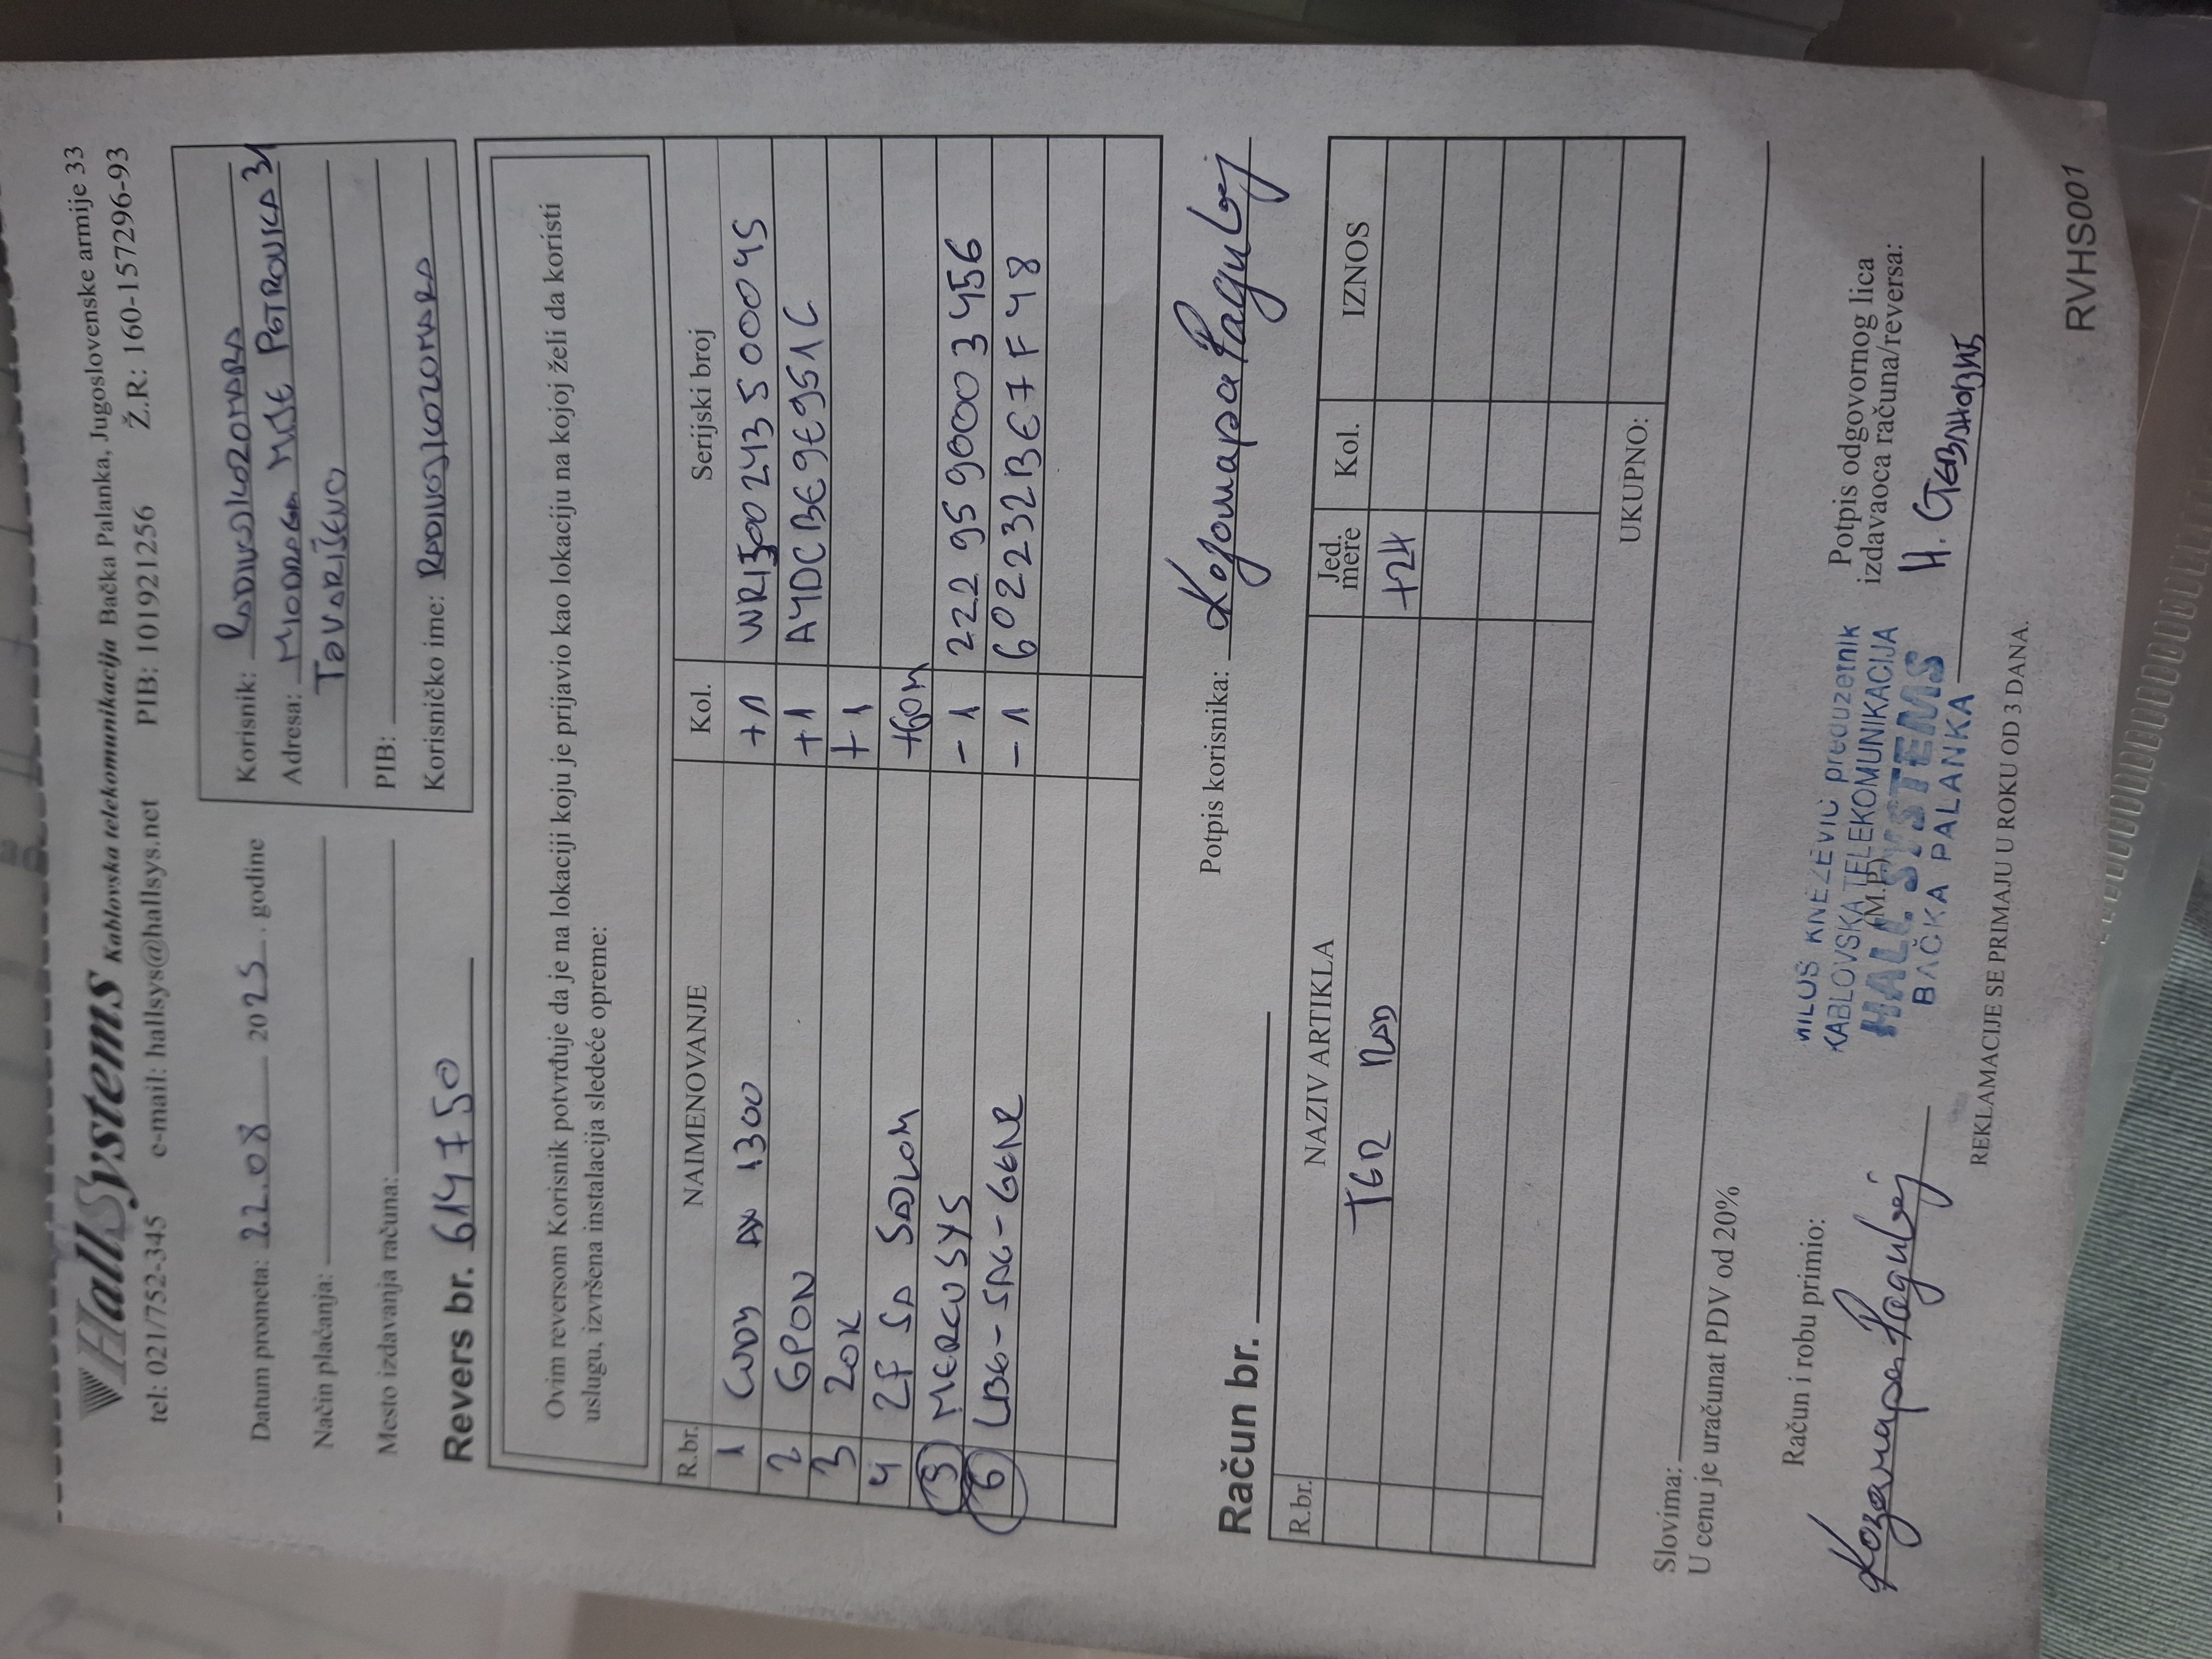 HallSystems Kablovska telekomunikacija Bačka Palanka, Jugoslovenske armije 33
tel: 021/752-345 e-mail: hallsys@hallsys.net PIB: 101921256 Ž.R: 160-157296-93
Datum prometa: 22.08 2025. godine
Način plaćanja:
Mesto izdavanja računa:
Revers br. 614750
Korisnik: RADIVOJ KOZOMARA
Adresa: MIODRAGA MIJE PETROVICA 31
TOVARIŠEVO
PIB:
Korisničko ime: RADIVOJ KOZOMARA
Ovim reversom Korisnik potvrđuje da je na lokaciji koju je prijavio kao lokaciju na kojoj želi da koristi
uslugu, izvršena instalacija sledeće opreme:
R.br. NAIMENOVANJE Kol. Serijski broj
1 CUDY AX 1300 +1 WR1300243500045
2 GPON +1 A4DCBE9E951C
3 ZOK +1
4 2F SA SAJLOM +60M
5 MERCUSYS -1 2229590003456
6 LBG-5AC-GEN2 -1 602232BE7F48
Potpis korisnika: Козомара Радивој
Račun br.
R.br. NAZIV ARTIKLA Jed. mere Kol. IZNOS
RAD +2H
UKUPNO:
Slovima:
U cenu je uračunat PDV od 20%
Račun i robu primio:
Козомара Радивој
MILOŠ KNEŽEVIĆ preduzetnik
KABLOVSKA TELEKOMUNIKACIJA
(M.P.)
HALL SYSTEMS
BAČKA PALANKA
Potpis odgovornog lica
izdavaoca računa/reversa:
Н. Стевановић
REKLAMACIJE SE PRIMAJU U ROKU OD 3 DANA.
RVHS001